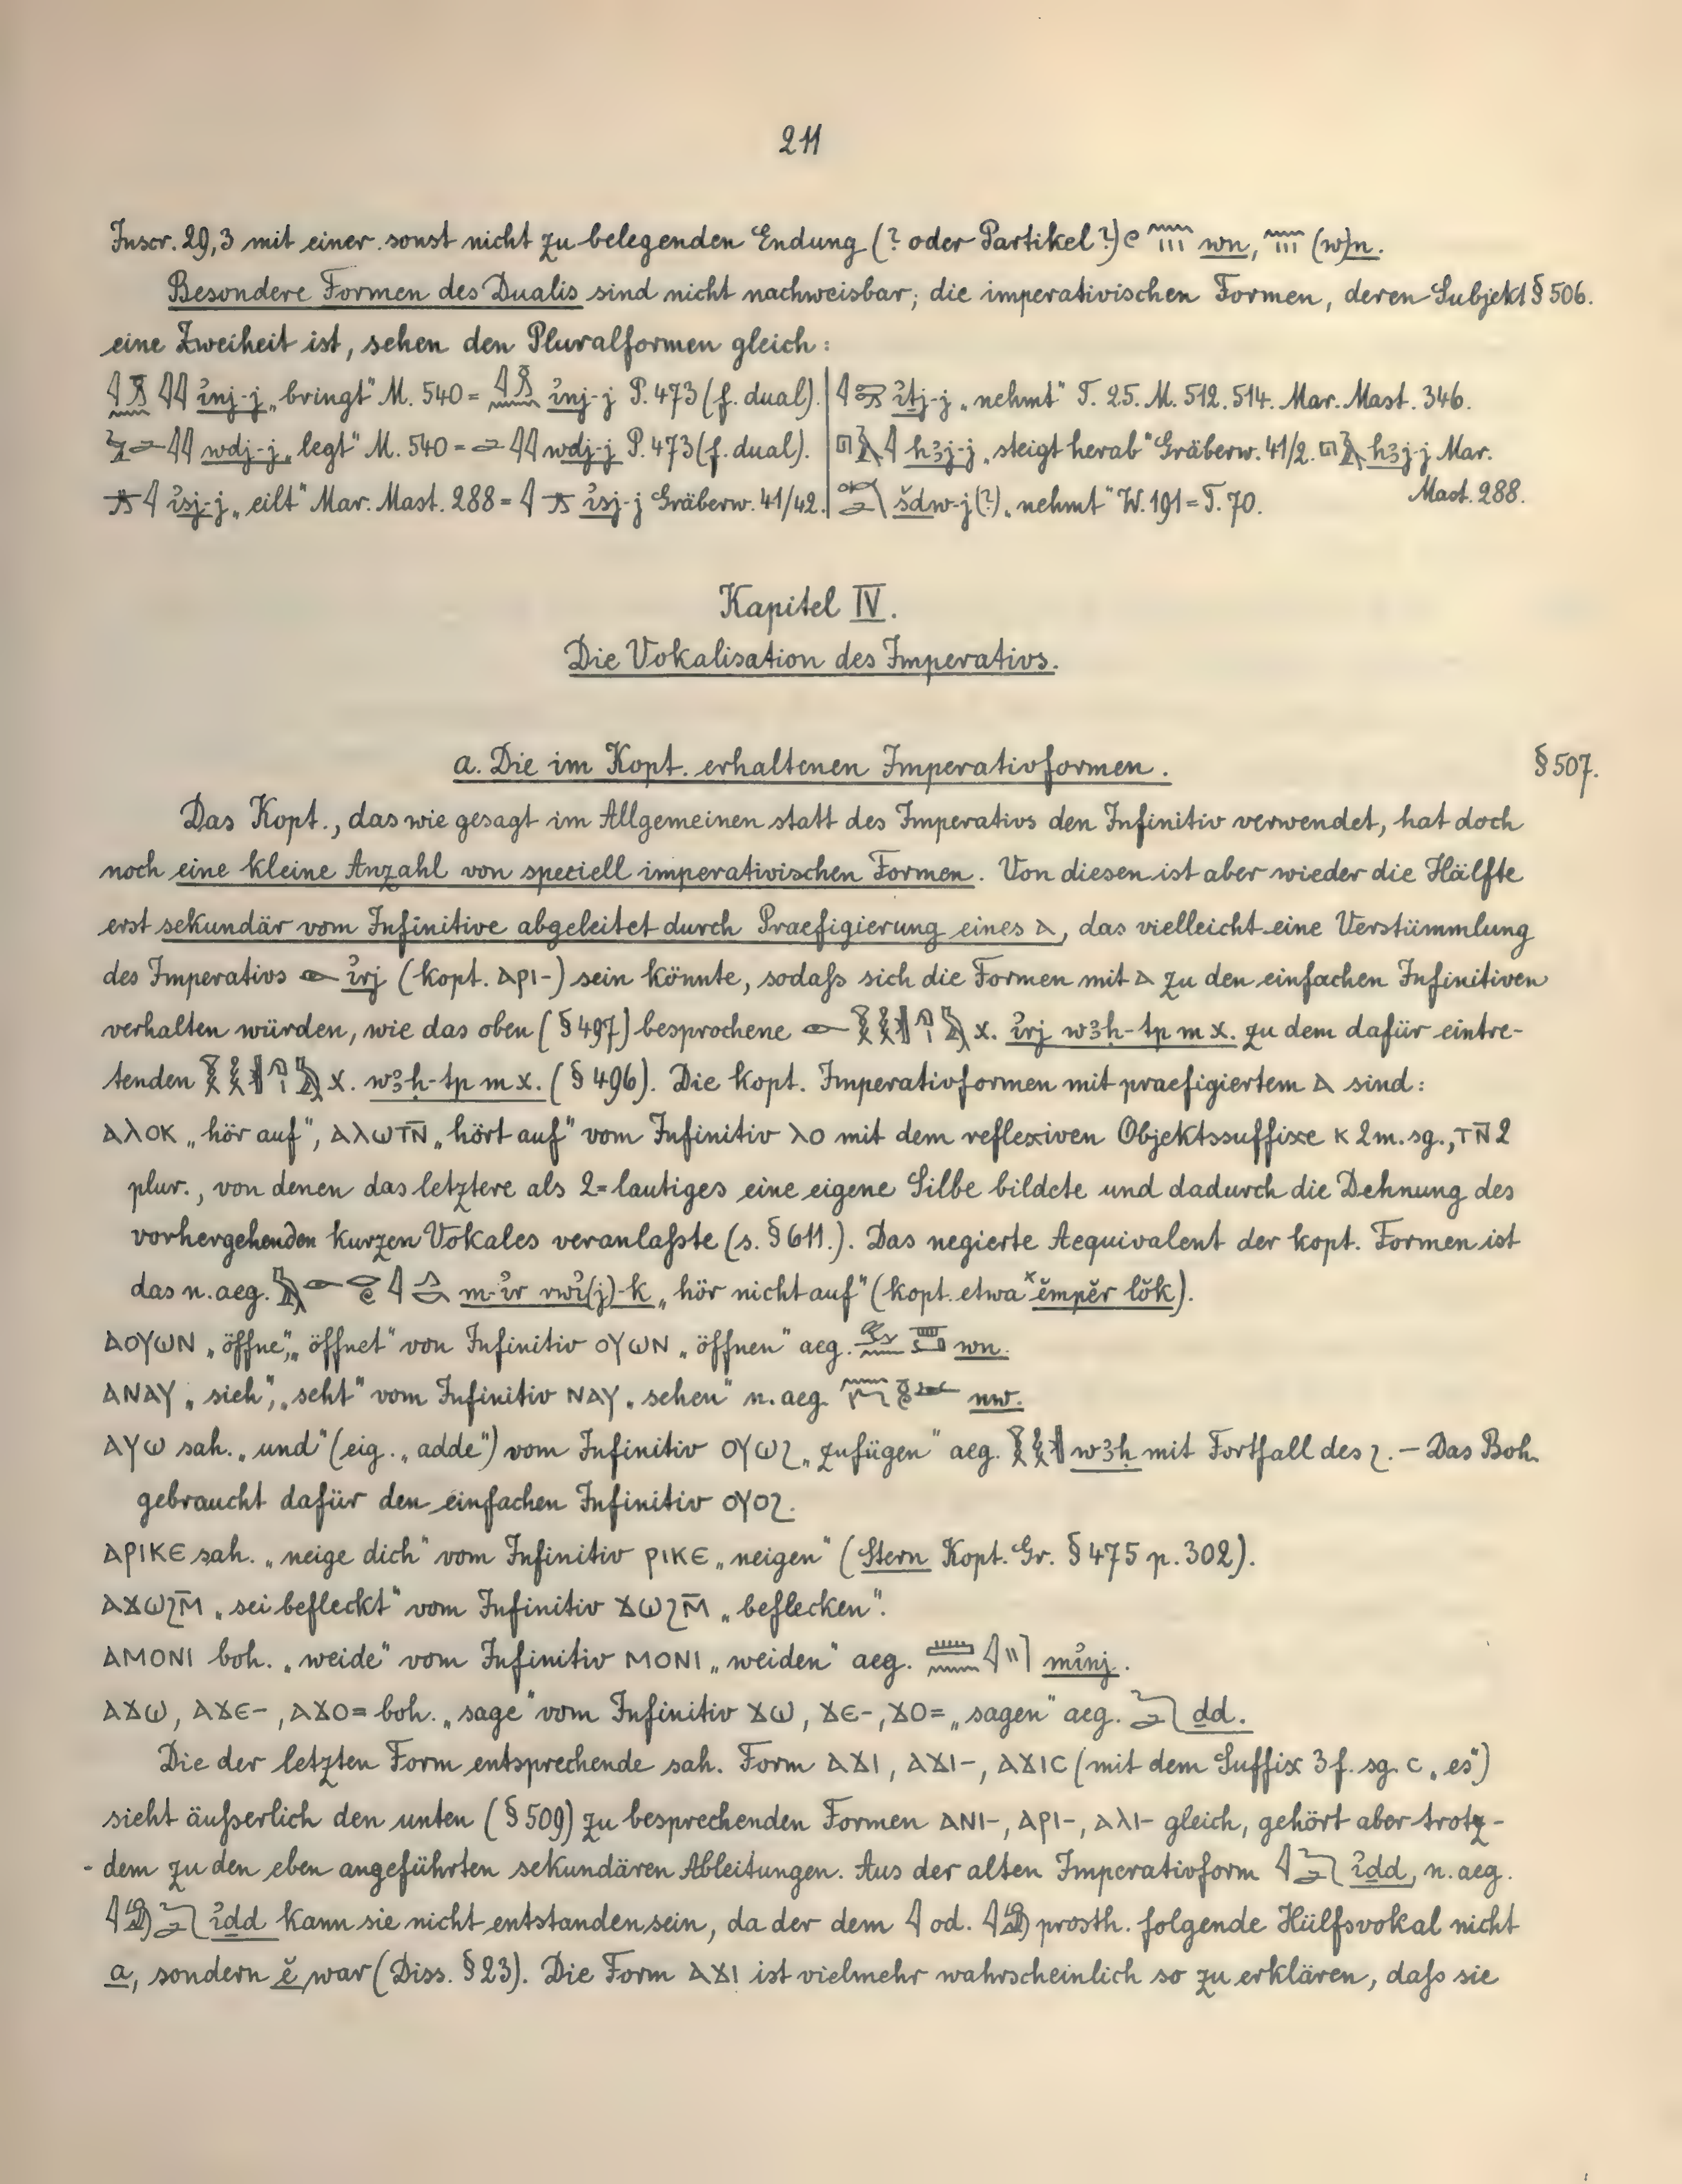 211
Inscr. 29,3 mit einer sonst nicht zu belegenden Endung (? oder Partikel?) wn, (w)n.
Besondere Formen des Dualis sind nicht nachweisbar; die imperativischen Formen, deren Subjekt § 506.
eine Zweiheit ist, sehen den Pluralformen gleich:
i̓nj-j „bringt" M. 540 = i̓nj-j P. 473 (f. dual). | i̓ṯj-j „nehmt" T. 25. M. 512. 514. Mar. Mast. 346.
wdj-j „legt" M. 540 = wdj-j P. 473 (f. dual). | hꜣj-j „steigt herab" Gräberw. 41/2. hꜣj-j Mar.
i̓sj-j „eilt" Mar. Mast. 288 = i̓sj-j Gräberw. 41/42. | šdw-j(?) „nehmt" W. 191 = T. 70. Mast. 288.
Kapitel IV.
Die Vokalisation des Imperativs.
a. Die im Kopt. erhaltenen Imperativformen. § 507.
Das Kopt., das wie gesagt im Allgemeinen statt des Imperativs den Infinitiv verwendet, hat doch
noch eine kleine Anzahl von speciell imperativischen Formen. Von diesen ist aber wieder die Hälfte
erst sekundär vom Infinitive abgeleitet durch Praefigierung eines ⲁ, das vielleicht eine Verstümmlung
des Imperativs i̓rj (kopt. ⲁⲣⲓ-) sein könnte, sodaſs sich die Formen mit ⲁ zu den einfachen Infinitiven
verhalten würden, wie das oben (§ 497) besprochene x. i̓rj wꜣḥ-tp m x. zu dem dafür eintre-
tenden x. wꜣḥ-tp m x. (§ 496). Die kopt. Imperativformen mit praefigiertem ⲁ sind:
ⲁⲗⲟⲕ „hör auf", ⲁⲗⲱⲧⲛ̄ „hört auf" vom Infinitiv ⲗⲟ mit dem reflexiven Objektssuffixe ⲕ 2 m. sg., ⲧⲛ̄ 2
plur., von denen das letztere als 2=lautiges eine eigene Silbe bildete und dadurch die Dehnung des
vorhergehenden kurzen Vokales veranlaſste (s. § 611.). Das negierte Aequivalent der kopt. Formen ist
das n. aeg. m-i̓r rwi̓(j)-k „hör nicht auf" (kopt. etwa ˣĕmpĕr lŏk).
ⲁⲟⲩⲱⲛ „öffne", „öffnet" von Infinitiv ⲟⲩⲱⲛ „öffnen" aeg. wn.
ⲁⲛⲁⲩ „sieh", „seht" vom Infinitiv ⲛⲁⲩ „sehen" n. aeg. nw.
ⲁⲩⲱ sah. „und" (eig. „adde") vom Infinitiv ⲟⲩⲱϩ „zufügen" aeg. wꜣḥ mit Fortfall des ϩ. — Das Boh.
gebraucht dafür den einfachen Infinitiv ⲟⲩⲟϩ.
ⲁⲣⲓⲕⲉ sah. „neige dich" vom Infinitiv ⲣⲓⲕⲉ „neigen" (Stern Kopt. Gr. § 475 p. 302).
ⲁϫⲱϩⲙ̄ „sei befleckt" vom Infinitiv ϫⲱϩⲙ̄ „beflecken".
ⲁⲙⲟⲛⲓ boh. „weide" vom Infinitiv ⲙⲟⲛⲓ „weiden" aeg. mi̓nj.
ⲁϫⲱ, ⲁϫⲉ-, ⲁϫⲟ= boh. „sage" vom Infinitiv ϫⲱ, ϫⲉ-, ϫⲟ= „sagen" aeg. ḏd.
Die der letzten Form entsprechende sah. Form ⲁϫⲓ, ⲁϫⲓ-, ⲁϫⲓⲥ (mit dem Suffix 3 f. sg. ⲥ „es")
sieht äuſserlich den unten (§ 509) zu besprechenden Formen ⲁⲛⲓ-, ⲁⲣⲓ-, ⲁⲗⲓ- gleich, gehört aber trotz-
- dem zu den eben angeführten sekundären Ableitungen. Aus der alten Imperativform i̓ḏd, n. aeg.
i̓ḏd kann sie nicht entstanden sein, da der dem od. prosth. folgende Hülfsvokal nicht
a, sondern ĕ war (Diss. § 23). Die Form ⲁϫⲓ ist vielmehr wahrscheinlich so zu erklären, daſs sie